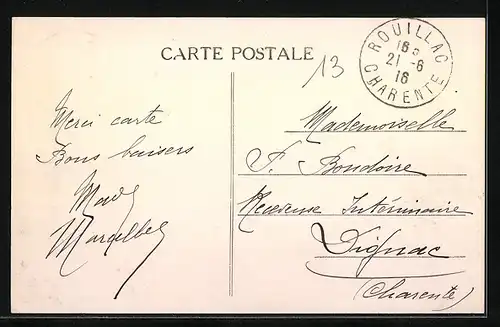 CARTE POSTALE
ROUILLAC
16
21 - 6
16
CHARENTE
13
Merci carte
Bons baisers
Mademoiselle
F. Bondoire
Receveuse Intérimaire
Dignac
(Charente)